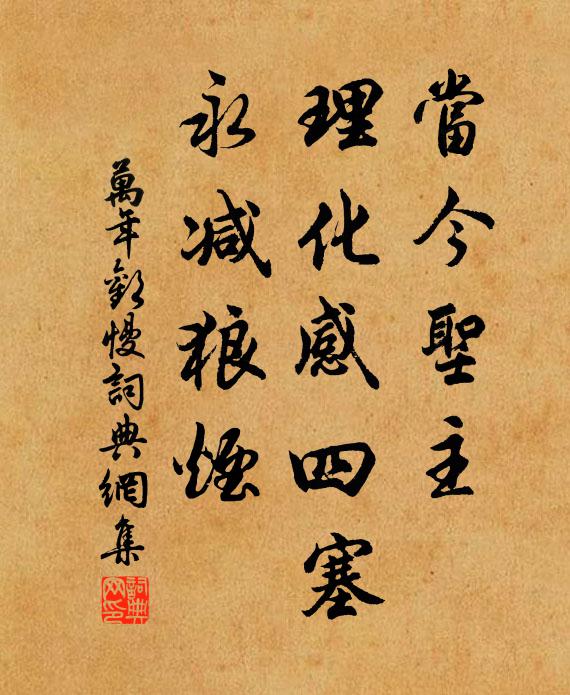 當今聖主
理化感四塞
永减狼煙
萬年歡慢詞典網集
詞典网印